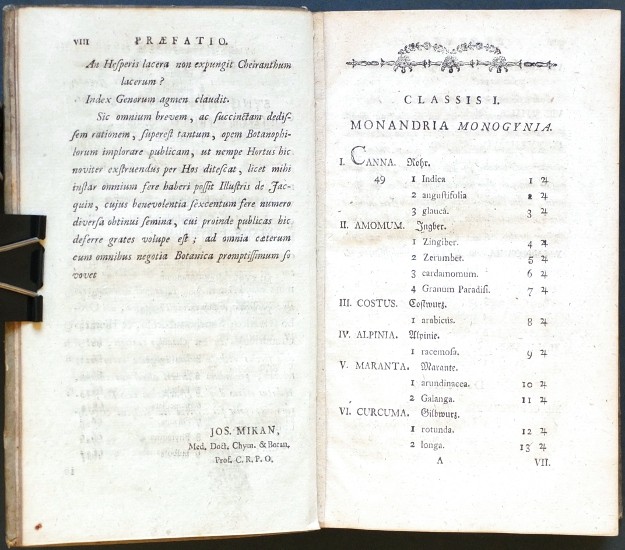 VIII PRÆFATIO.
An Hesperis lacera non expungit Cheiranthum
lacerum?
Index Generum agmen claudit.
Sic omnium brevem, ac succinctam dedis-
sem rationem, superest tantum, opem Botanophi-
lorum implorare publicam, ut nempe Hortus hic
noviter exstruendus per Hos ditescat, licet mihi
instar omnium fere haberi possit Illustris de Jac-
quin, cujus benevolentia sexcentum fere numero
diversa obtinui semina, cui proinde publicas hic
deferre grates volupe est; ad omnia cæterum
cum omnibus negotia Botanica promptissimum fo-
voves
JOS. MIKAN,
Med. Doct. Chym. & Botan.
Prof. C. R. P. O.
CLASSIS I.
MONANDRIA MONOGYNIA.
I. CANNA. Rohr.
49 1 Indica 1 ♃
2 angustifolia 2 ♃
3 glauca. 3 ♃
II. AMOMUM. Ingber.
1 Zingiber. 4 ♃
2 Zerumbet. 5 ♃
3 cardamomum. 6 ♃
4 Granum Paradisi. 7 ♃
III. COSTUS. Costwurz.
1 arabicus. 8 ♃
IV. ALPINIA. Alpinie.
1 racemosa. 9 ♃
V. MARANTA. Marante.
1 arundinacea. 10 ♃
2 Galanga. 11 ♃
VI. CURCUMA. Gilbwurz.
1 rotunda. 12 ♃
2 longa. 13 ♃
A VII.